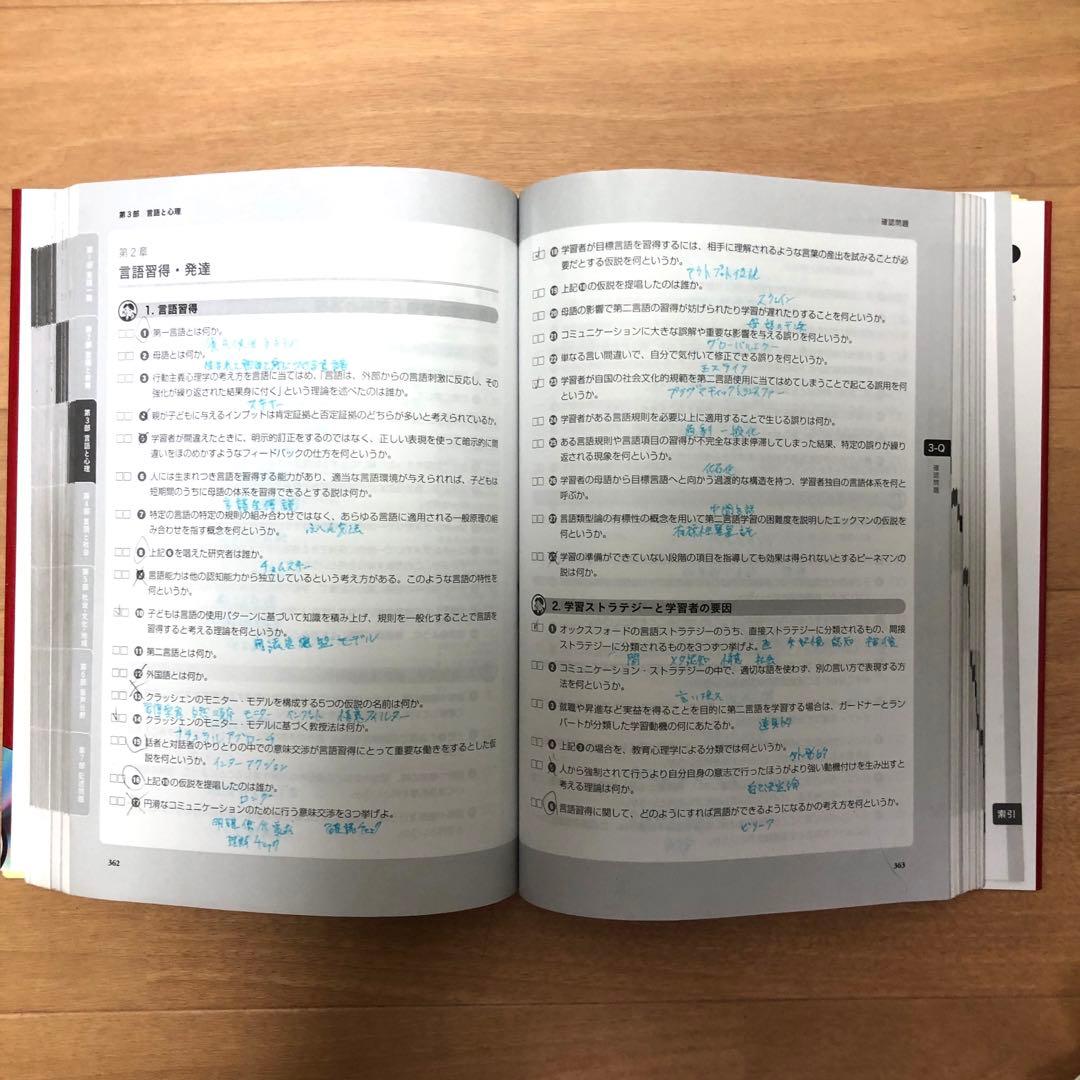 第3部 言語と心理
第2章
言語習得・発達
1. 言語習得
1 第一言語とは何か。
2 母語とは何か。
3 行動主義心理学の考え方を言語に当てはめ、「言語は、外部からの言語刺激に反応し、その
強化が繰り返された結果身に付く」という理論を述べたのは誰か。
スキナー
4 親が子どもに与えるインプットは肯定証拠と否定証拠のどちらが多いと考えられているか。
5 学習者が間違えたときに、明示的訂正をするのではなく、正しい表現を使って暗示的に間
違いをほのめかすようなフィードバックの仕方を何というか。
6 人には生まれつき言語を習得する能力があり、適当な言語環境が与えられれば、子どもは
短期間のうちに母語の体系を習得できるとする説は何か。
言語生得説
7 特定の言語の特定の規則の組み合わせではなく、あらゆる言語に適用される一般原理の組
み合わせを指す概念を何というか。
ふへん文法
8 上記6を唱えた研究者は誰か。
チョムスキー
9 言語能力は他の認知能力から独立しているという考え方がある。このような言語の特性を
何というか。
10 子どもは言語の使用パターンに基づいて知識を積み上げ、規則を一般化することで言語を
習得すると考える理論を何というか。
用法基盤モデル
11 第二言語とは何か。
12 外国語とは何か。
13 クラッシェンのモニター・モデルを構成する5つの仮説の名前は何か。
習得学習 自然順序 モニター インプット 情意フィルター
14 クラッシェンのモニター・モデルに基づく教授法は何か。
ナチュラルアプローチ
15 話者と対話者のやりとりの中での意味交渉が言語習得にとって重要な働きをするとした仮
説を何というか。
インターアクション
16 上記15の仮説を提唱したのは誰か。
ロング
17 円滑なコミュニケーションのために行う意味交渉を3つ挙げよ。
明確化要求 確認チェック
理解チェック
362
確認問題
18 学習者が目標言語を習得するには、相手に理解されるような言葉の産出を試みることが必
要だとする仮説を何というか。
アウトプット仮説
19 上記18の仮説を提唱したのは誰か。
スウェイン
20 母語の影響で第二言語の習得が妨げられたり学習が遅れたりすることを何というか。
母語の干渉
21 コミュニケーションに大きな誤解や重要な影響を与える誤りを何というか。
グローバルエラー
22 単なる言い間違いで、自分で気付いて修正できる誤りを何というか。
ミステイク
23 学習者が自国の社会文化的規範を第二言語使用に当てはめてしまうことで起こる誤用を何
というか。
プラグマティックトランスファー
24 学習者がある言語規則を必要以上に適用することで生じる誤りは何か。
過剰一般化
25 ある言語規則や言語項目の習得が不完全なまま停滞してしまった結果、特定の誤りが繰り
返される現象を何というか。
化石化
26 学習者の母語から目標言語へと向かう過渡的な構造を持つ、学習者独自の言語体系を何と
呼ぶか。
中間言語
27 言語類型論の有標性の概念を用いて第二言語学習の困難度を説明したエックマンの仮説を
何というか。
有標性差異仮説
28 学習の準備ができていない段階の項目を指導しても効果は得られないとするピーネマンの
説は何か。
2. 学習ストラテジーと学習者の要因
1 オックスフォードの言語ストラテジーのうち、直接ストラテジーに分類されるもの、間接
ストラテジーに分類されるものを3つずつ挙げよ。直 記憶 認知 補償
間 メタ認知 情意 社会
2 コミュニケーション・ストラテジーの中で、適切な語を使わず、別の言い方で表現する方
法を何というか。
言い換え
3 就職や昇進など実益を得ることを目的に第二言語を学習する場合は、ガードナーとラン
バートが分類した学習動機の何にあたるか。
道具的
4 上記3の場合を、教育心理学による分類では何というか。
外発的
5 人から強制されて行うより自分自身の意志で行ったほうがより強い動機付けを生み出すと
考える理論は何か。
自己決定論
6 言語習得に関して、どのようにすれば言語ができるようになるかの考え方を何というか。
ビリーフ
363
第3部 言語と心理
3-Q
確認問題
索引